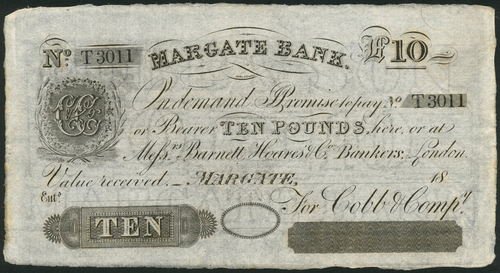 MARGATE BANK.
No. T3011 £10
On demand I Promise to pay No. T3011
or Bearer TEN POUNDS, here, or at
Messrs. Barnett Hoares & Co. Bankers, London.
Value received. MARGATE, 18
Entd.
For Cobb & Compy.
TEN